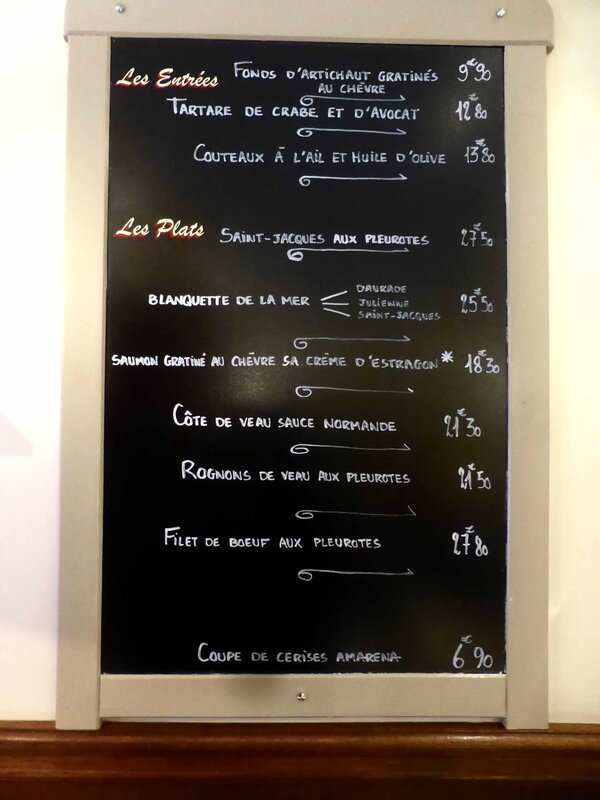 Les Entrées FONDS D'ARTICHAUT GRATINÉS 9€90
AU CHÈVRE
TARTARE DE CRABE ET D'AVOCAT 12€80
COUTEAUX À L'AIL ET HUILE D'OLIVE 13€80
Les Plats SAINT-JACQUES AUX PLEUROTES 27€50
DAURADE
BLANQUETTE DE LA MER JULIENNE 25€50
SAINT-JACQUES
SAUMON GRATINÉ AU CHÈVRE SA CRÈME D'ESTRAGON * 18€30
CÔTE DE VEAU SAUCE NORMANDE 21€30
ROGNONS DE VEAU AUX PLEUROTES 21€50
FILET DE BOEUF AUX PLEUROTES 27€80
COUPE DE CERISES AMARENA 6€90